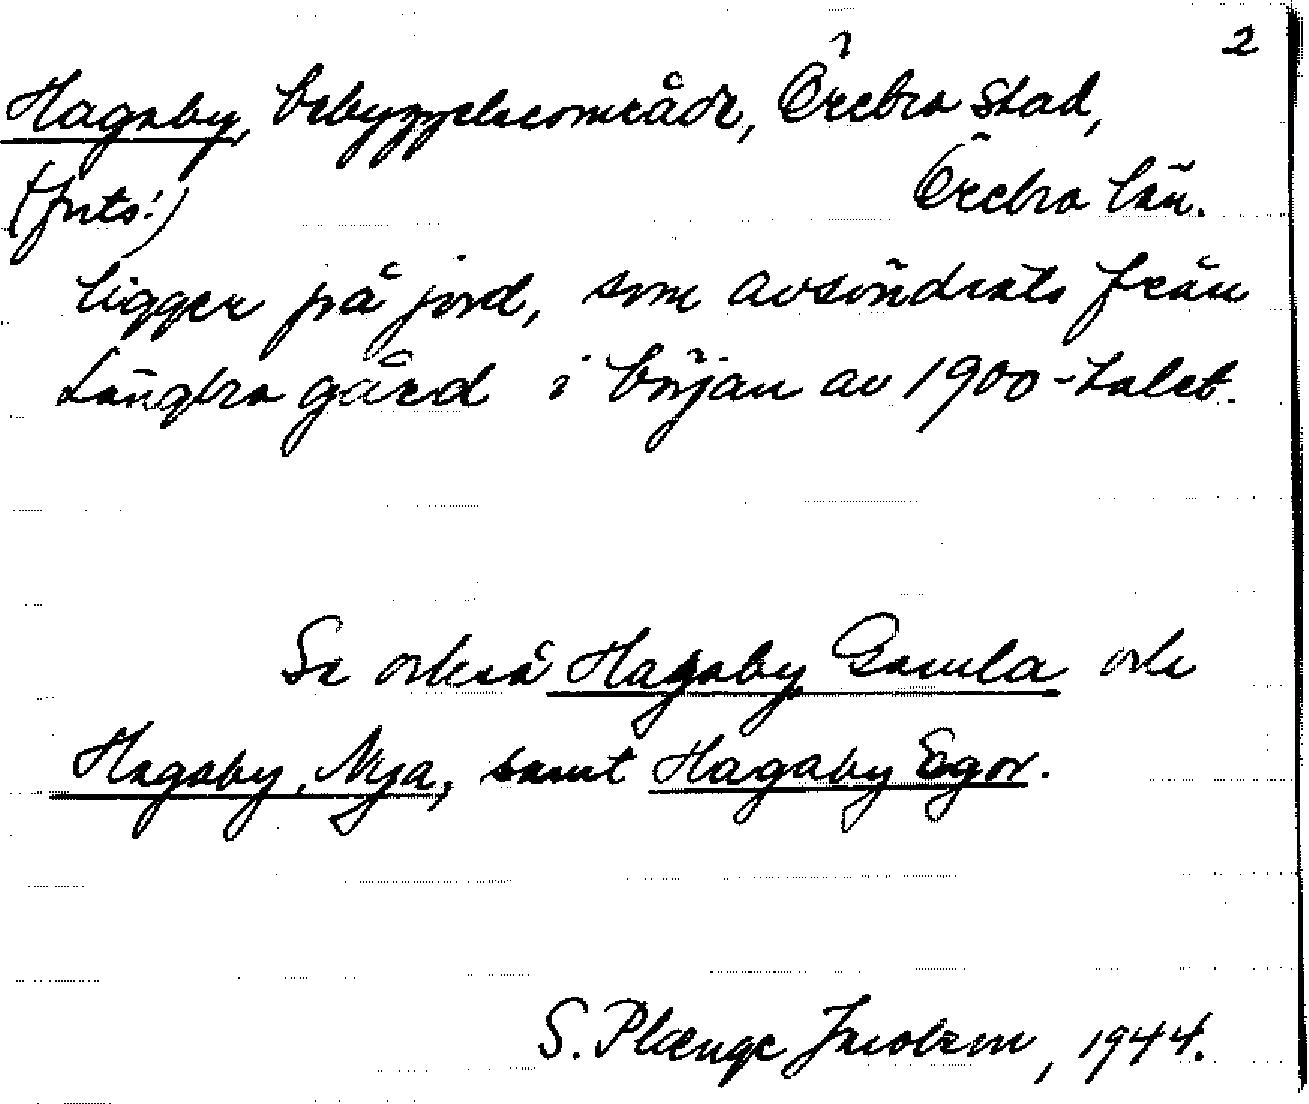 2
Hagaby, bebyggelseområde, Örebro stad,
Örebro län.
(forts.)
ligger på jord, som avsöndrats från
Längbro gård i början av 1900-talet.
Se också Hagaby, Gamla och
Hagaby, Nya, samt Hagaby Egor.
S. Plænge Jacobson, 1944.